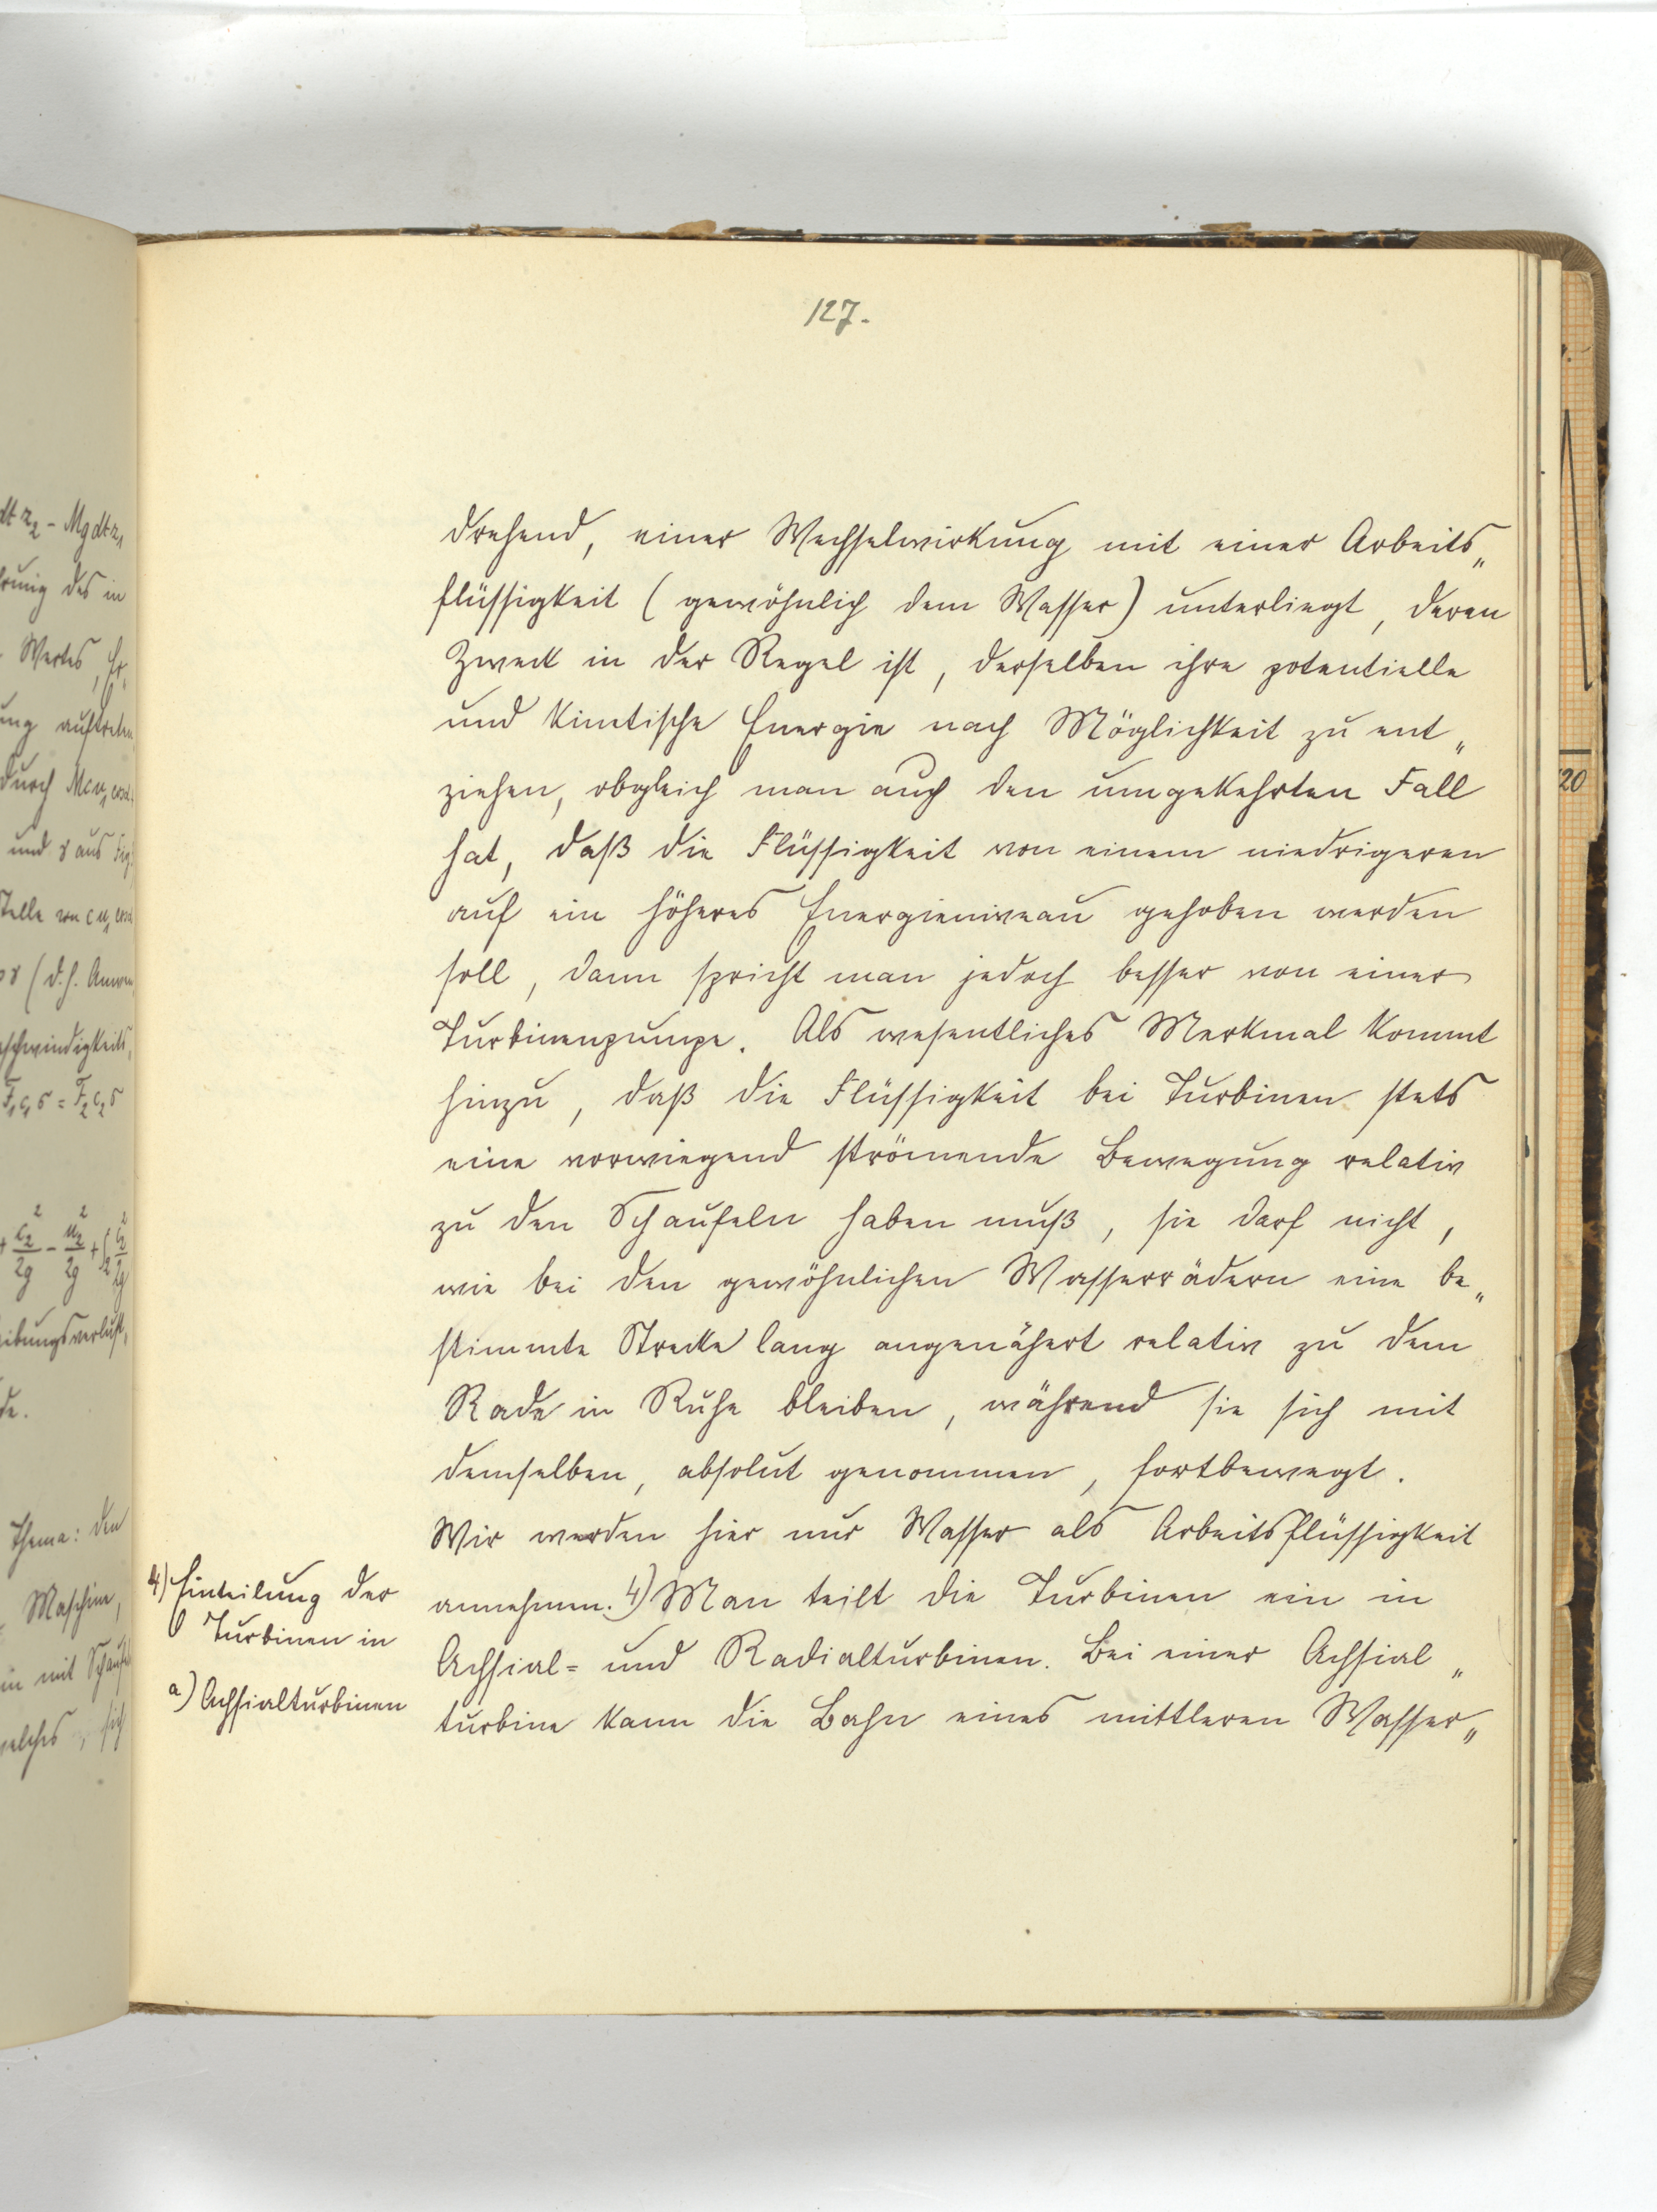 127.
drehend, einer Wechselwirkung mit einer Arbeits„
flüssigkeit (gewöhnlich dem Wasser) unterliegt, deren
Zweck in der Regel ist, derselben ihre potentielle
und kinetische Energie nach Möglichkeit zu ent„
ziehen, obgleich man auch den umgekehrten Fall
hat, daß die Flüssigkeit von einem niedrigeren
auf ein höheres Energieniveau gehoben werden
soll, dann spricht man jedoch besser von einer
Turbinenpumpe. Als wesentliches Merkmal kommt
hinzu, daß die Flüssigkeit bei Turbinen stets
eine vorwiegend strömende Bewegung relativ
zu den Schaufeln haben muß, sie darf nicht,
wie bei den gewöhnlichen Wasserrädern eine be„
stimmte Strecke lang angenähert relativ zu dem
Rade in Ruhe bleiben, während sie sich mit
demselben, absolut genommen, fortbewegt.
Wir werden hier nur Wasser als Arbeitsflüssigkeit
annehmen. 4) Man teilt die Turbinen ein in
Achsial= und Radialturbinen. Bei einer Achsial„
turbine kann die Bahn eines mittleren Wasser„
4) Einteilung der
Turbinen in
a) Achsialturbinen
dt z2 - Mg dt z1
des in
Wertes, Er„
auftreten
durch
und γ aus Fig.
(d. h.
F1 c1 σ = F2 c2 σ
Thema: den
Maschine,
in mit
welches, sich
20